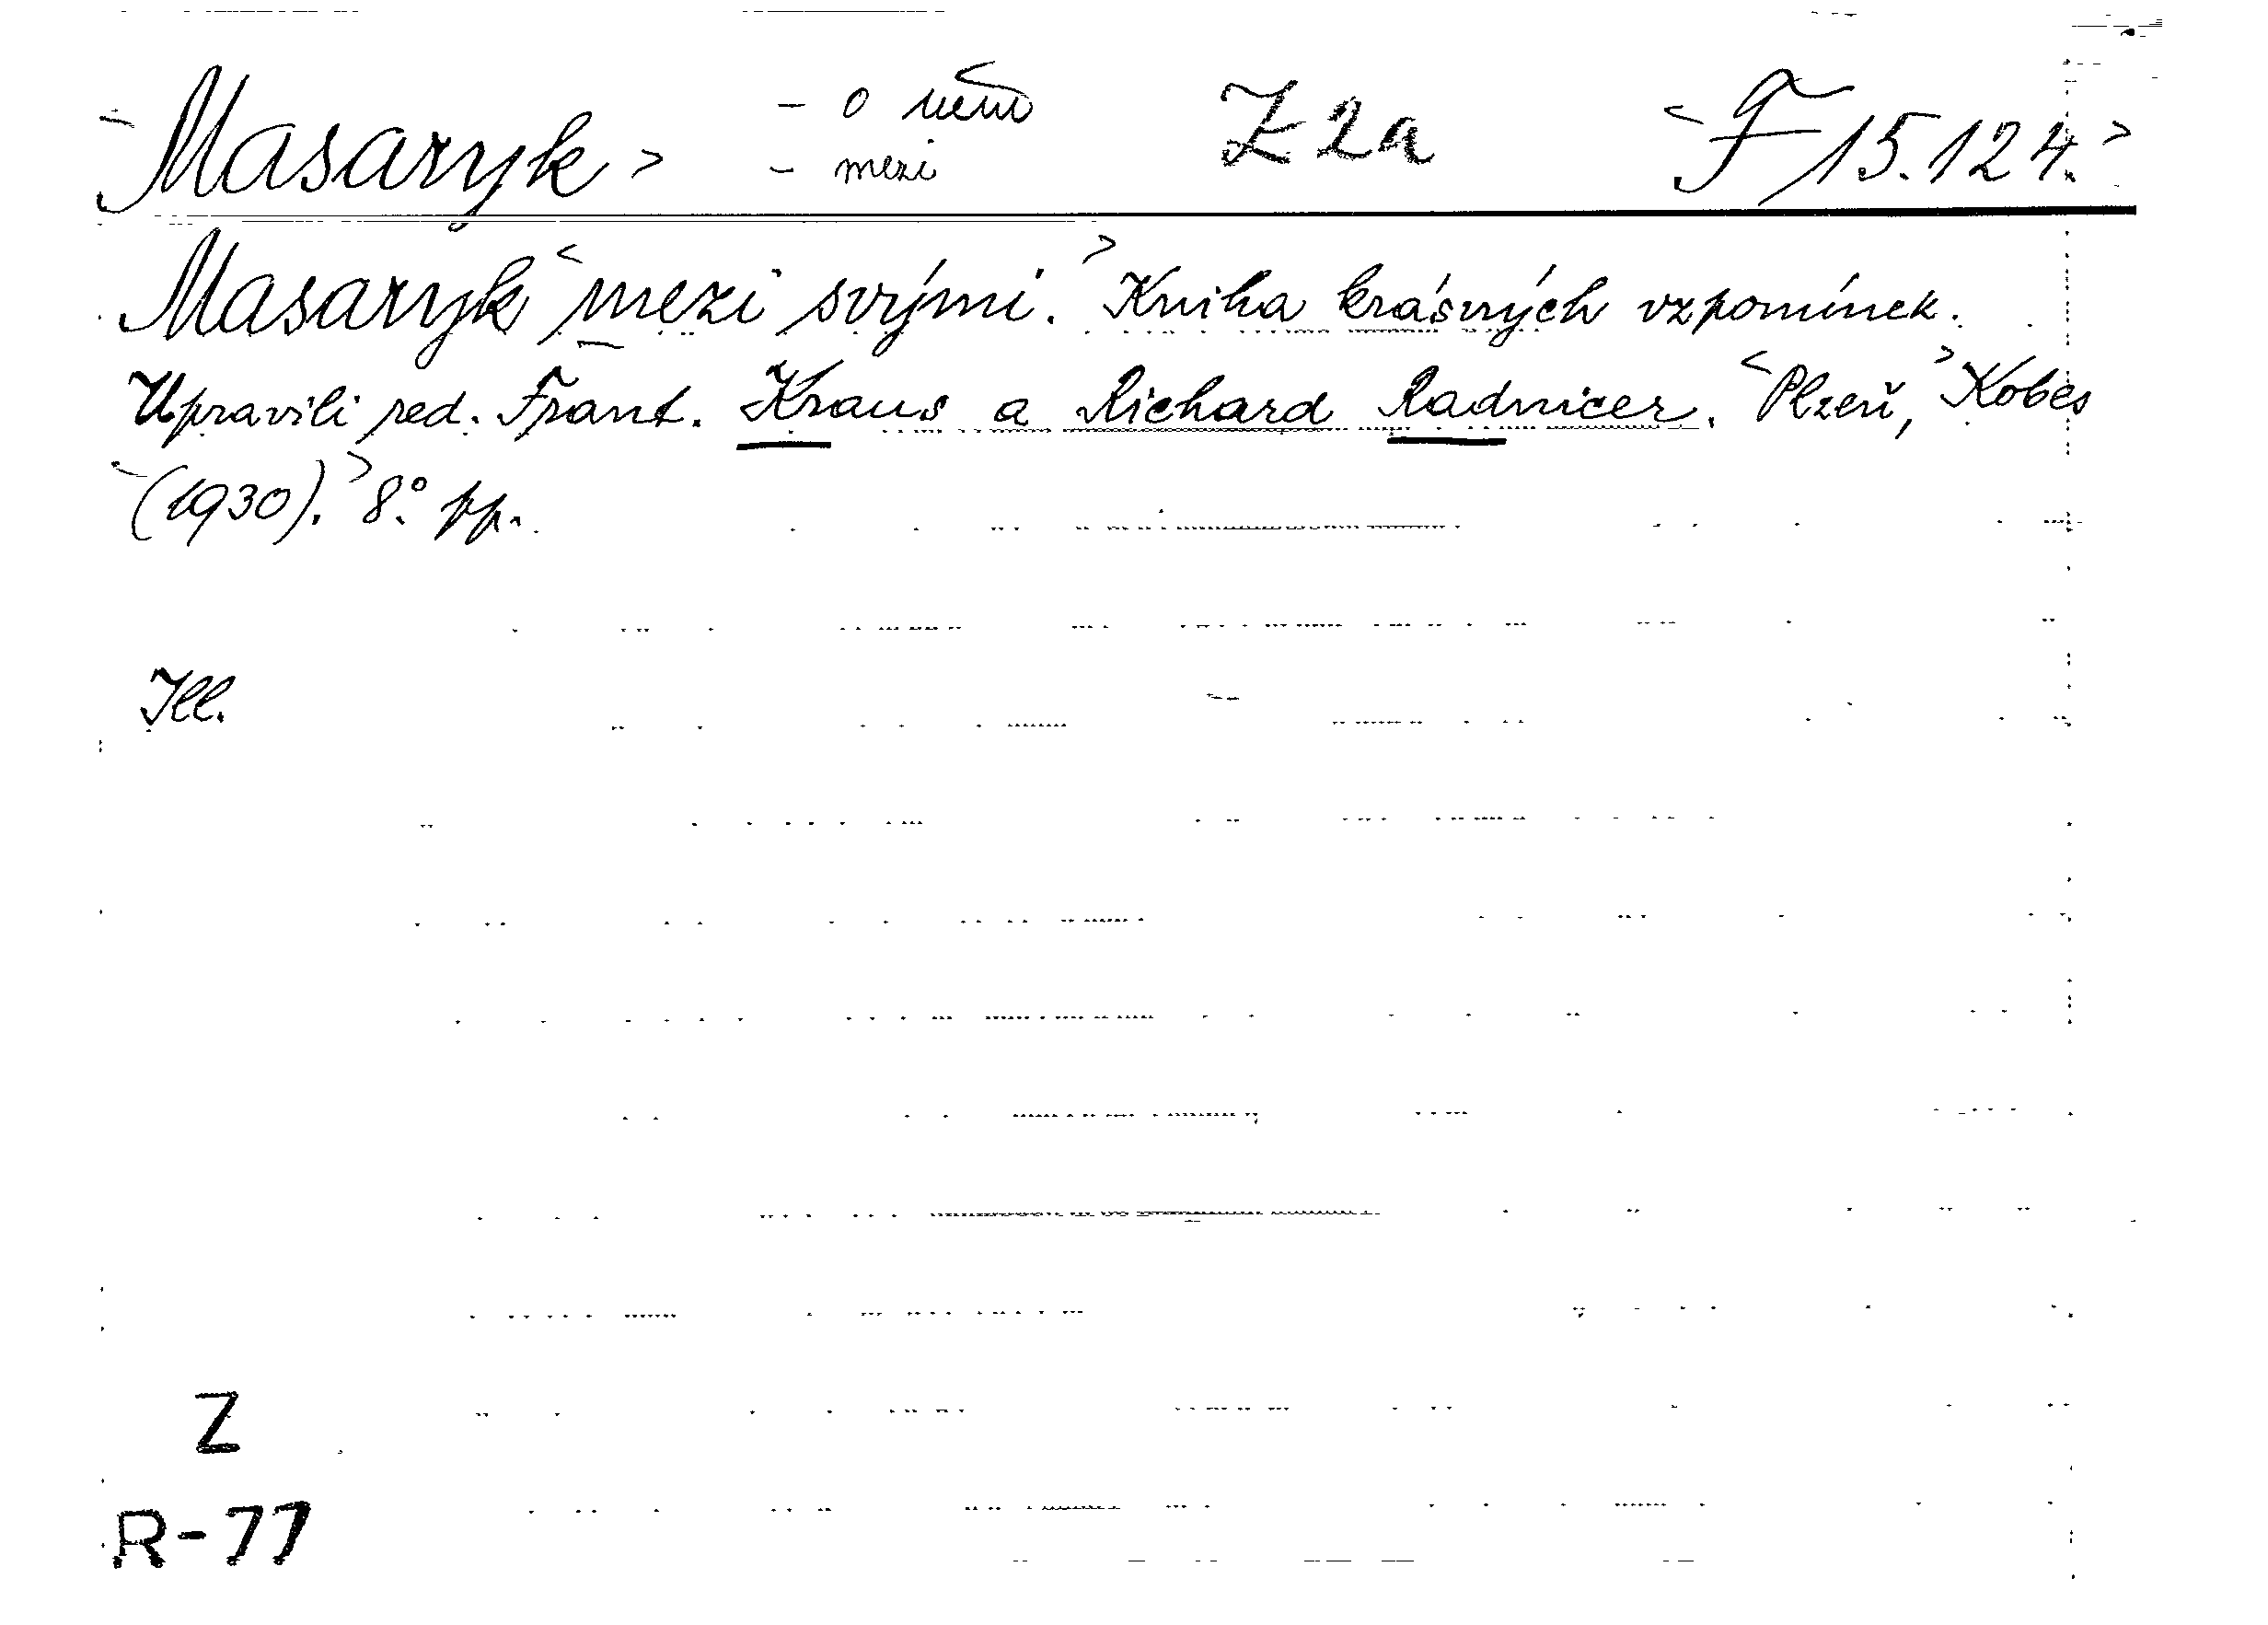 Masaryk - o něm Z 2a F 15.124.
- mezi
Masaryk mezi svými. Kniha krásných vzpomínek.
Upravili red. Frant. Kraus a Richard Radnicer. Plzeň, Kobes
(1930). 8° pp.
Ill.
Z
R-77